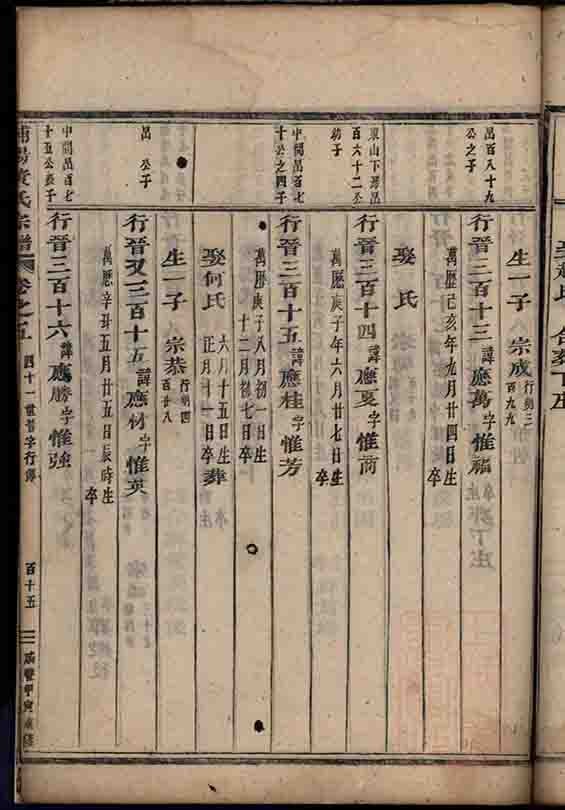 生一子 宗成 行朝三百九九
昌百八十九公之子
行晉三百十三 諱應萬字惟福
萬歷己亥年九月廿四日生 卒
娶 氏
東山下房昌百六十二公幼子
行晉三百十四 諱應夏字惟商
萬歷庚子年六月廿七日生 卒
中間昌百七十公之四子
行晉三百十五 諱應桂字惟芳
萬歷庚子八月初一日生
十二月初七日卒
娶何氏 六月十五日生 正月十一日卒 葬
生一子 宗恭 行朝四百廿八
昌 公子
行晉又三百十五 諱應材字惟英
萬歷辛丑五月廿五日辰時生 卒
中間昌百七十五公長子
行晉三百十六 諱應勝字惟強
黃氏宗譜 卷之五 四十一世晉字行傳 百十五